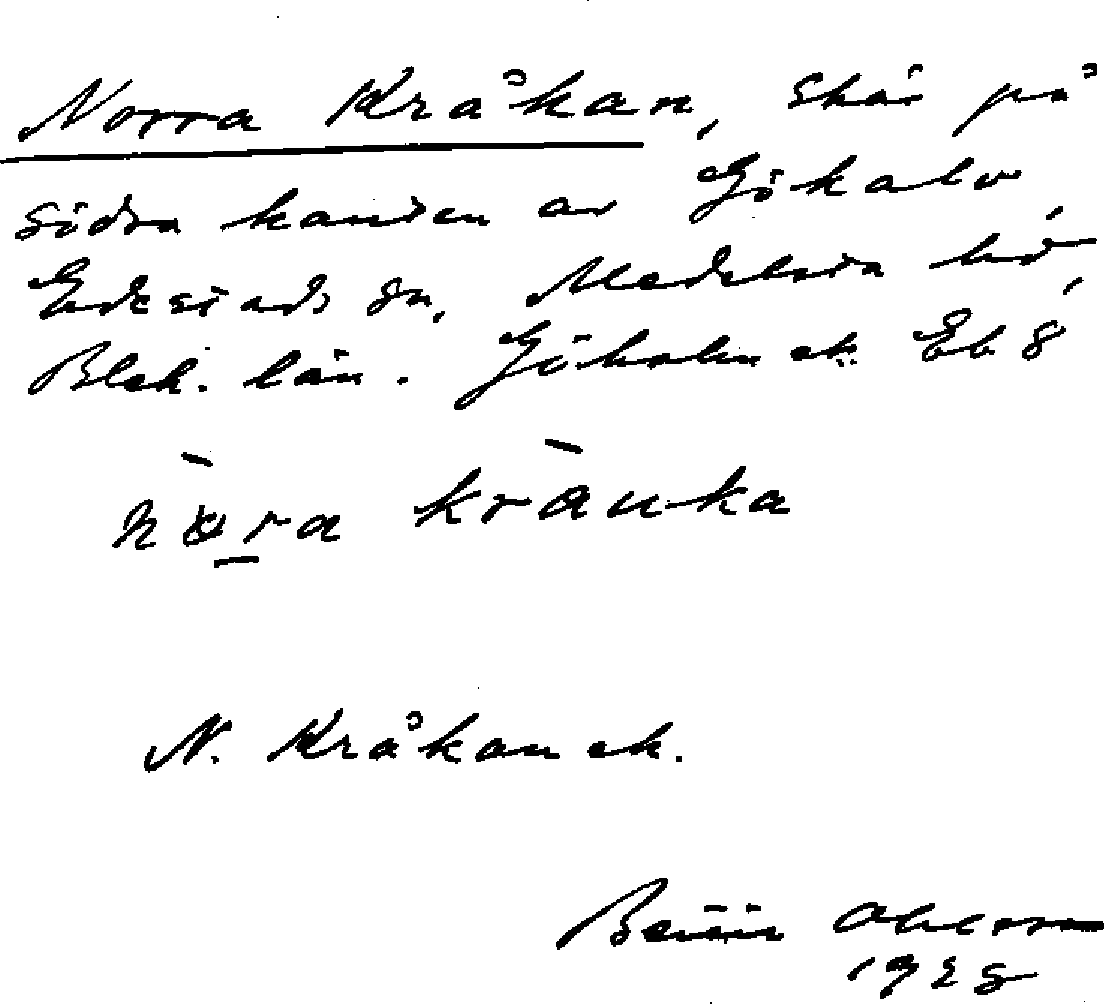 Norra Kråkan, Skär på
södra kanten av Gökalv,
Edestads sn, Medelsta hd,
Blek. län. Gökalv ek. Eb 8
nɷra kràuka
N. Kråkan ek.
Bertil Ohlsson
1928